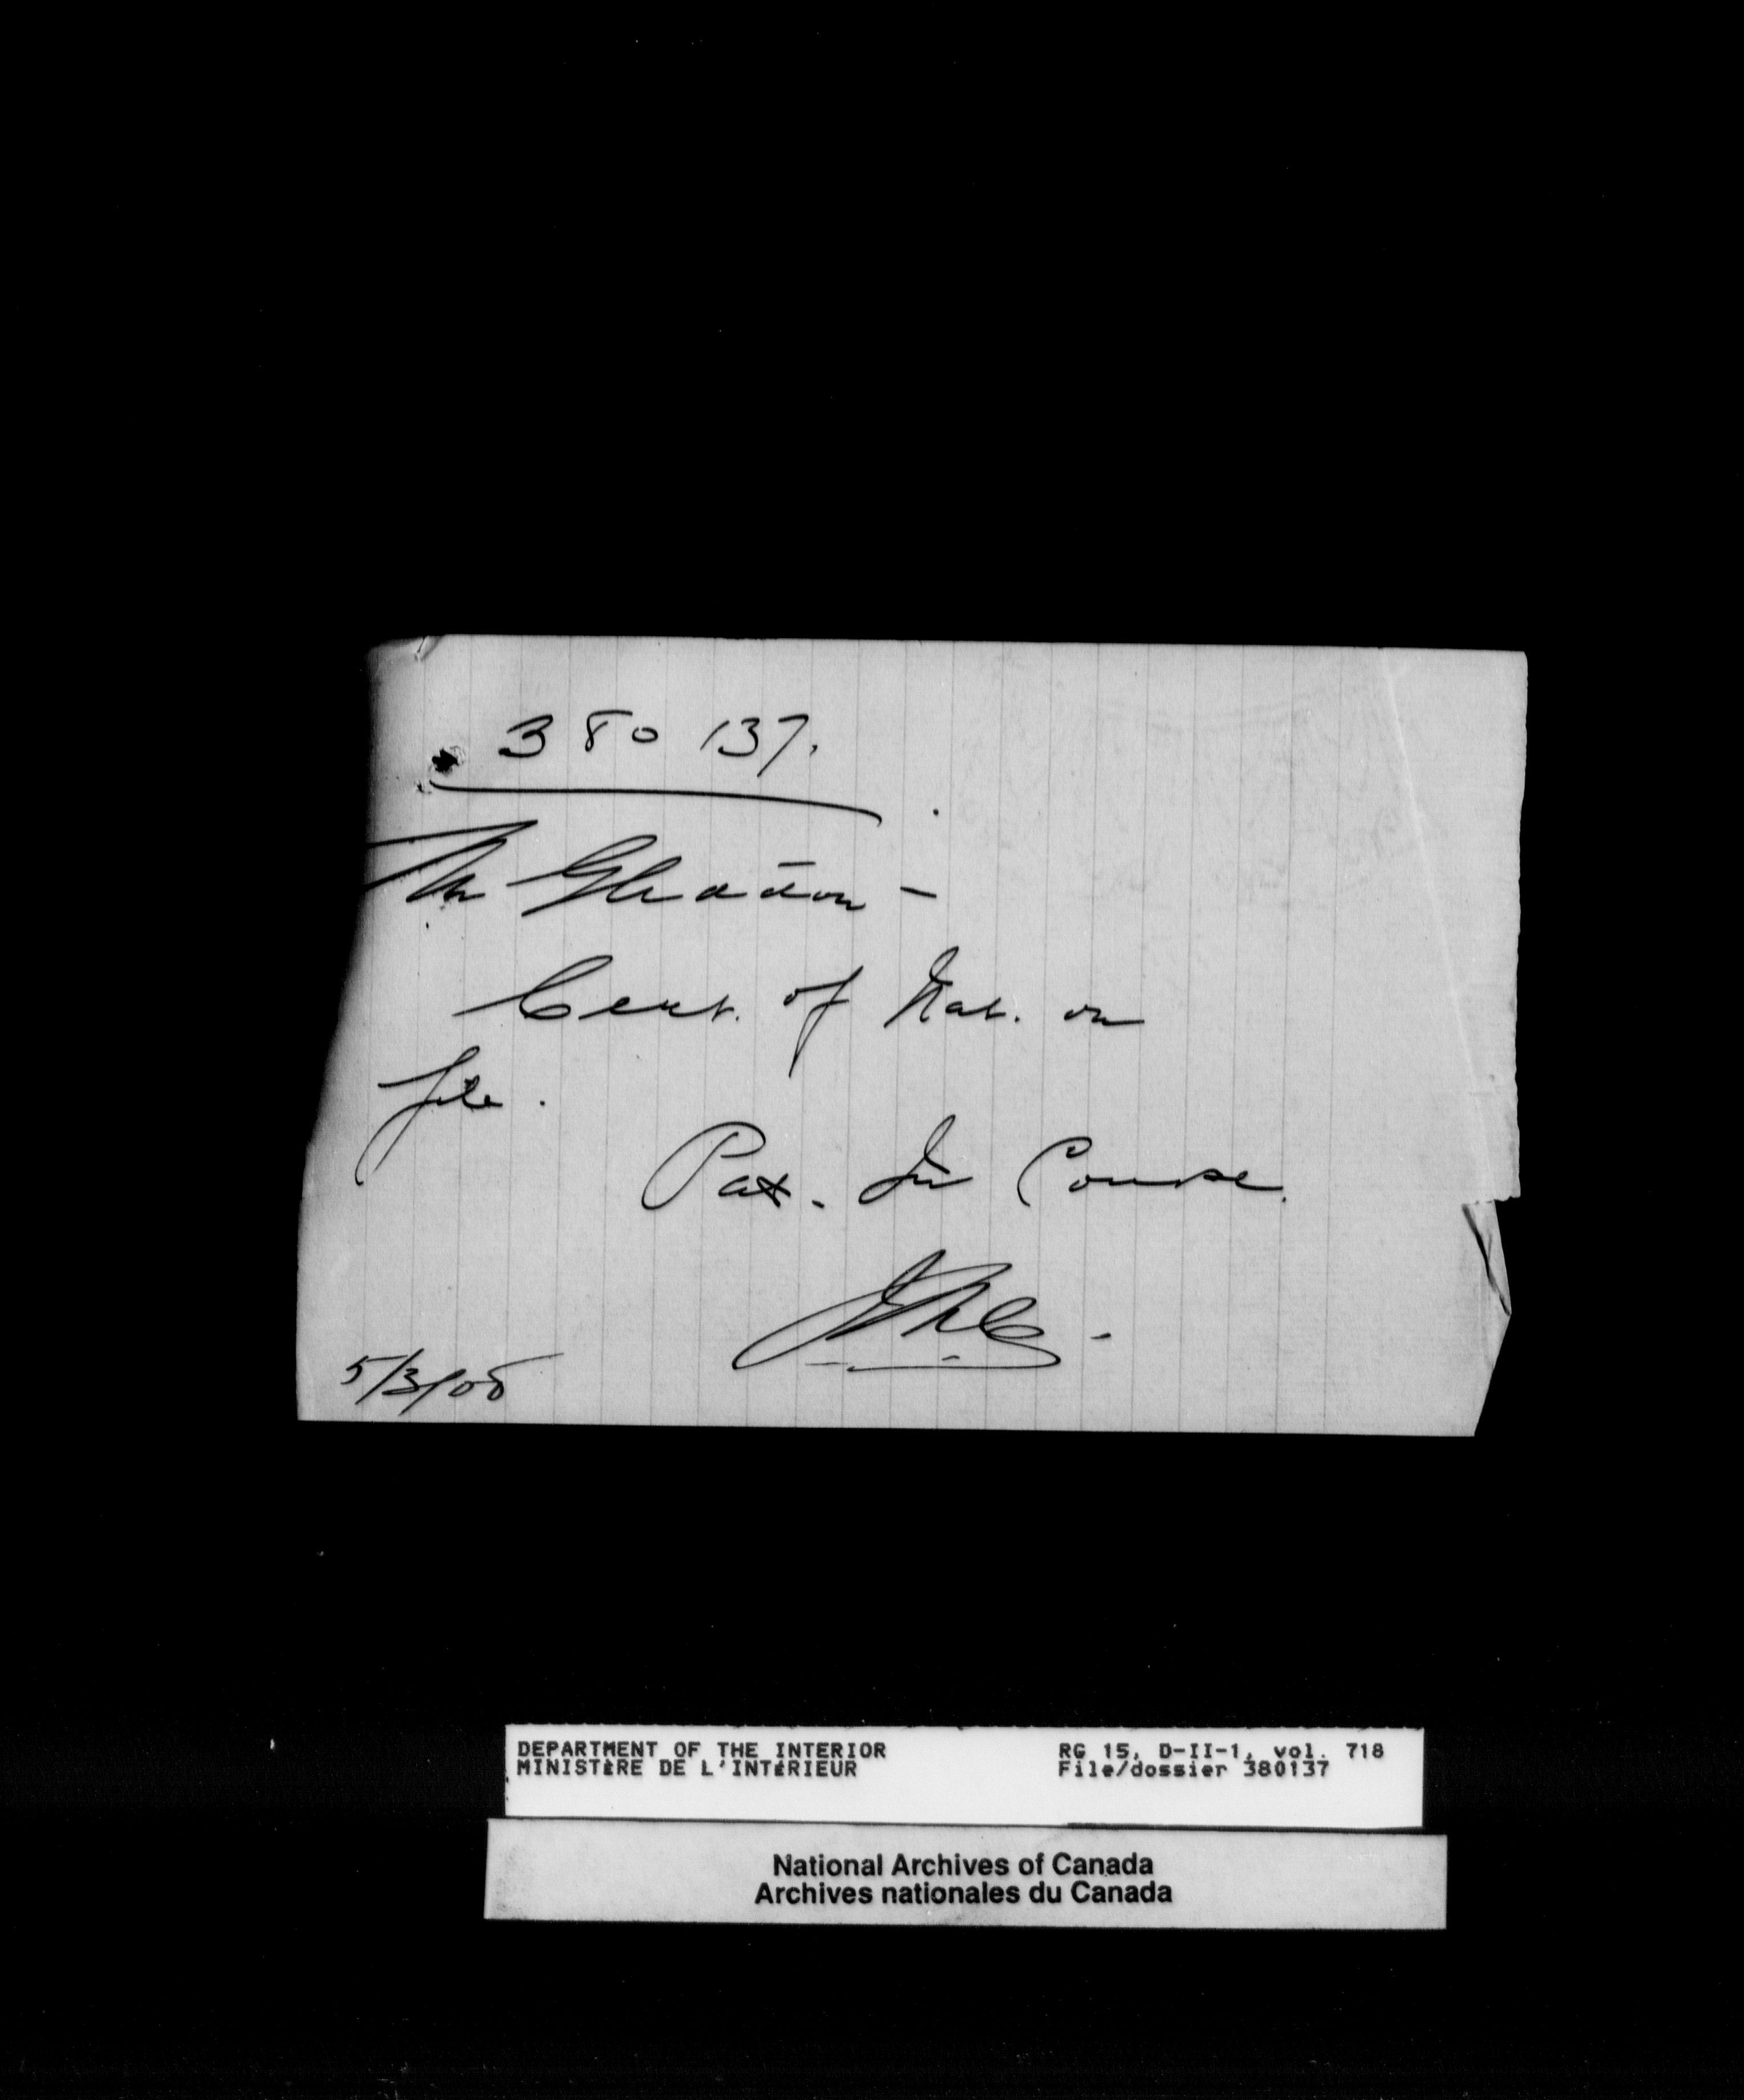 380137.
Mr
Cert. of Nat. on
file.
Pat. In Course.
5/3/05
DEPARTMENT OF THE INTERIOR
MINISTÈRE DE L'INTÉRIEUR
RG 15, D-II-1, vol. 718
File/dossier 380137
National Archives of Canada
Archives nationales du Canada